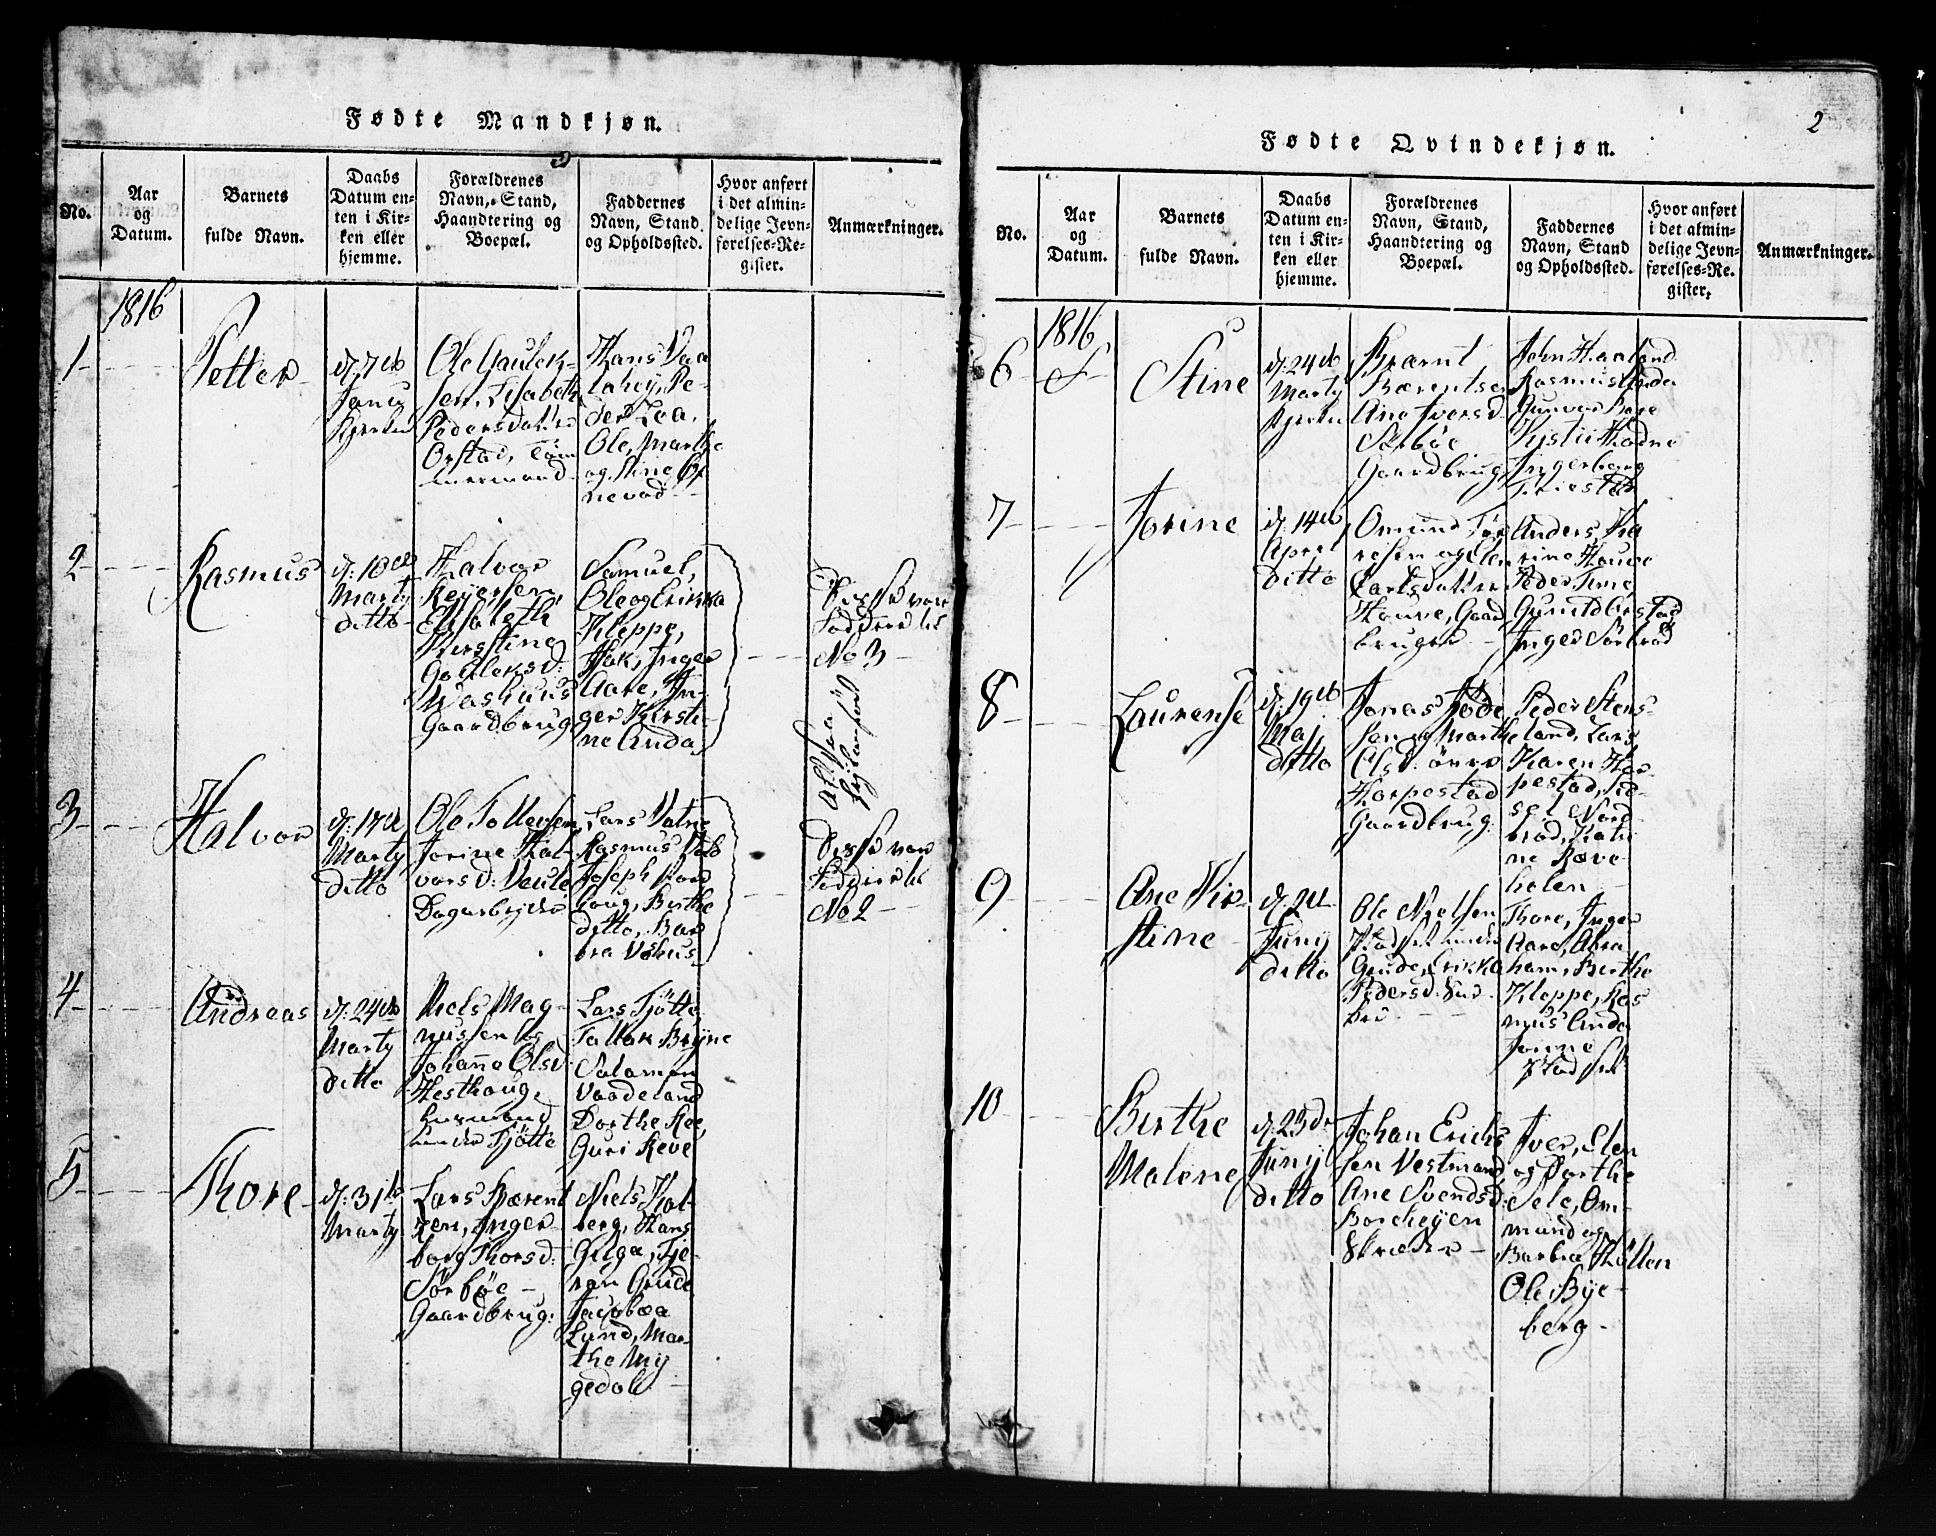 Fødte Mandkjøn.
No.
Aar
og
Datum.
Barnets
fulde Navn.
Daabs
Datum en-
ten i Kir-
ken eller
hjemme.
Forældrenes
Navn, Stand,
Haandtering og
Boepæl.
Faddernes
Navn, Stand
og Opholdssted.
Hvor anført
i det almin-
delige Jevn-
førelses-Re-
gister.
Anmærkninger.
1816
1
Petter
d. 7de
Janu
Kjerken
Ole Gaulek-
sen, Lisabeth
Pedersdatter
Orstad, Töm
mermand
Hans
Pe-
der Lea,
Ole, Marthe
og Stine
nevad
2
Rasmus
d: 10de
Marty
ditto
Halvor
Reyersen,
Elisabeth
Kirstine
Gauleksd:
Vashuus
Gaardbrug
Samuel,
Ole og Erikka
Kleppe,
Isak, Inger
Aare, In-
ger Kirsti-
ne Anda
Disse var
Faddere til
No 3
altsaa
fejlanført
3
Halvor
d: 17de
Marty
ditto
Ole Tollevsen,
Jorine Hal-
vorsd:
Dagarbejder
Lars Vatne
Rasmus
Joseph
houg, Berthe
ditto, Bar
bra Vshus
Disse var
Faddere til
No 2
4
Andreas
d: 24de
Marty
ditto
Niels Mag-
nussen og
Johanne Olsd:
Hesthoug,
huusmand
under Tjötte
Lars Tjötte
Tallak Bryne
Salamon
Vaadeland
Dorthe Ree,
Guri Reve
5
Thore
d: 31te
Marty
Lars Bærent
zen, Inger-
borg Thorsd:
Sørbøe
Gaardbrug:
Niels Hal-
berg, Hans
Gilga, Tje-
ran Grude
Jacobæa
Lund, Mar-
the My
gedal
2
Fødte Qvindekjøn.
No.
Aar
og
Datum.
Barnets
fulde Navn.
Daabs
Datum en-
ten i Kir-
ken eller
hjemme.
Forældrenes
Navn, Stand,
Haandtering og
Boepæl.
Faddernes
Navn, Stand
og Opholdssted.
Hvor anført
i det almin-
delige Jevn-
førelses-Re-
gister.
Anmærkninger.
1816
6
Stine
d. 24de
Marty
Kjerken
Bærent
Bærentsen
Ane Iversd
Sørbøe
Gaardbrug
John Haaland
Rasmus Anda
Gunvor Bore
Kjstii Hodne
Ingerborg
7
Jorine
d. 14de
April
ditto
Omund Tør
resen og Elen
Carlsdatter
Houve, Gaard
bruger
Anders, Ka
rine Houve
Peder Time
Gunild
Inger Sörbröd
8
Laurense
d. 19de
Maj
ditto
Jonas Jode
sen og Marthe
Olsd: övre
Horpestad
Gaardbrug:
Peder Stens-
land, Lars
Karen Hor-
pestad, Sid-
sel Nord
bröd, Katri
ne Ræve-
holen
9
Ane Kir-
stine
d. 2de
Juny
ditto
Ole Nielsen
Pladsen under
Grude, Erikka
Pedersd.
Thore, Inger
Aare, Abra
ham, Berthe
Kleppe, Ras
mus Anda
Jorine
Pladsen
10
Berthe
Malene
d. 23de
Juny
ditto
Johan Erichs
sen Vestmand,
Ane Svendsd:
Borchejen
Skræder
Iver, Elen
og Dorthe
Sele, Om-
mund og
Barbra Hölten
Ole Bye-
berg